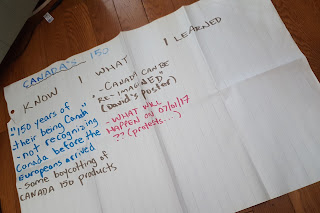 CANADA'S - 150
I KNOW I WHAT I LEARNED
"150 years of
their being Canada"
- not recognizing
Canada before the
Europeans arrived
- Some boycotting of
CANADA 150 products
- CANADA CAN BE
RE-IMAGINED"
(David's poster)
- WHAT WILL
HAPPEN ON 07/01/17
?? (protests...)